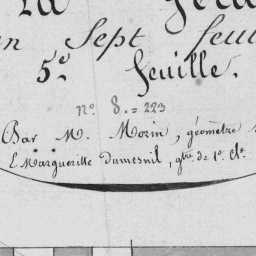 en Sept feui
5.e feuille.
n.o 8. = 223
Bar M. Morin, géomètre
E. Marguerille Dumesnil, g.tre de 1.e cl.e